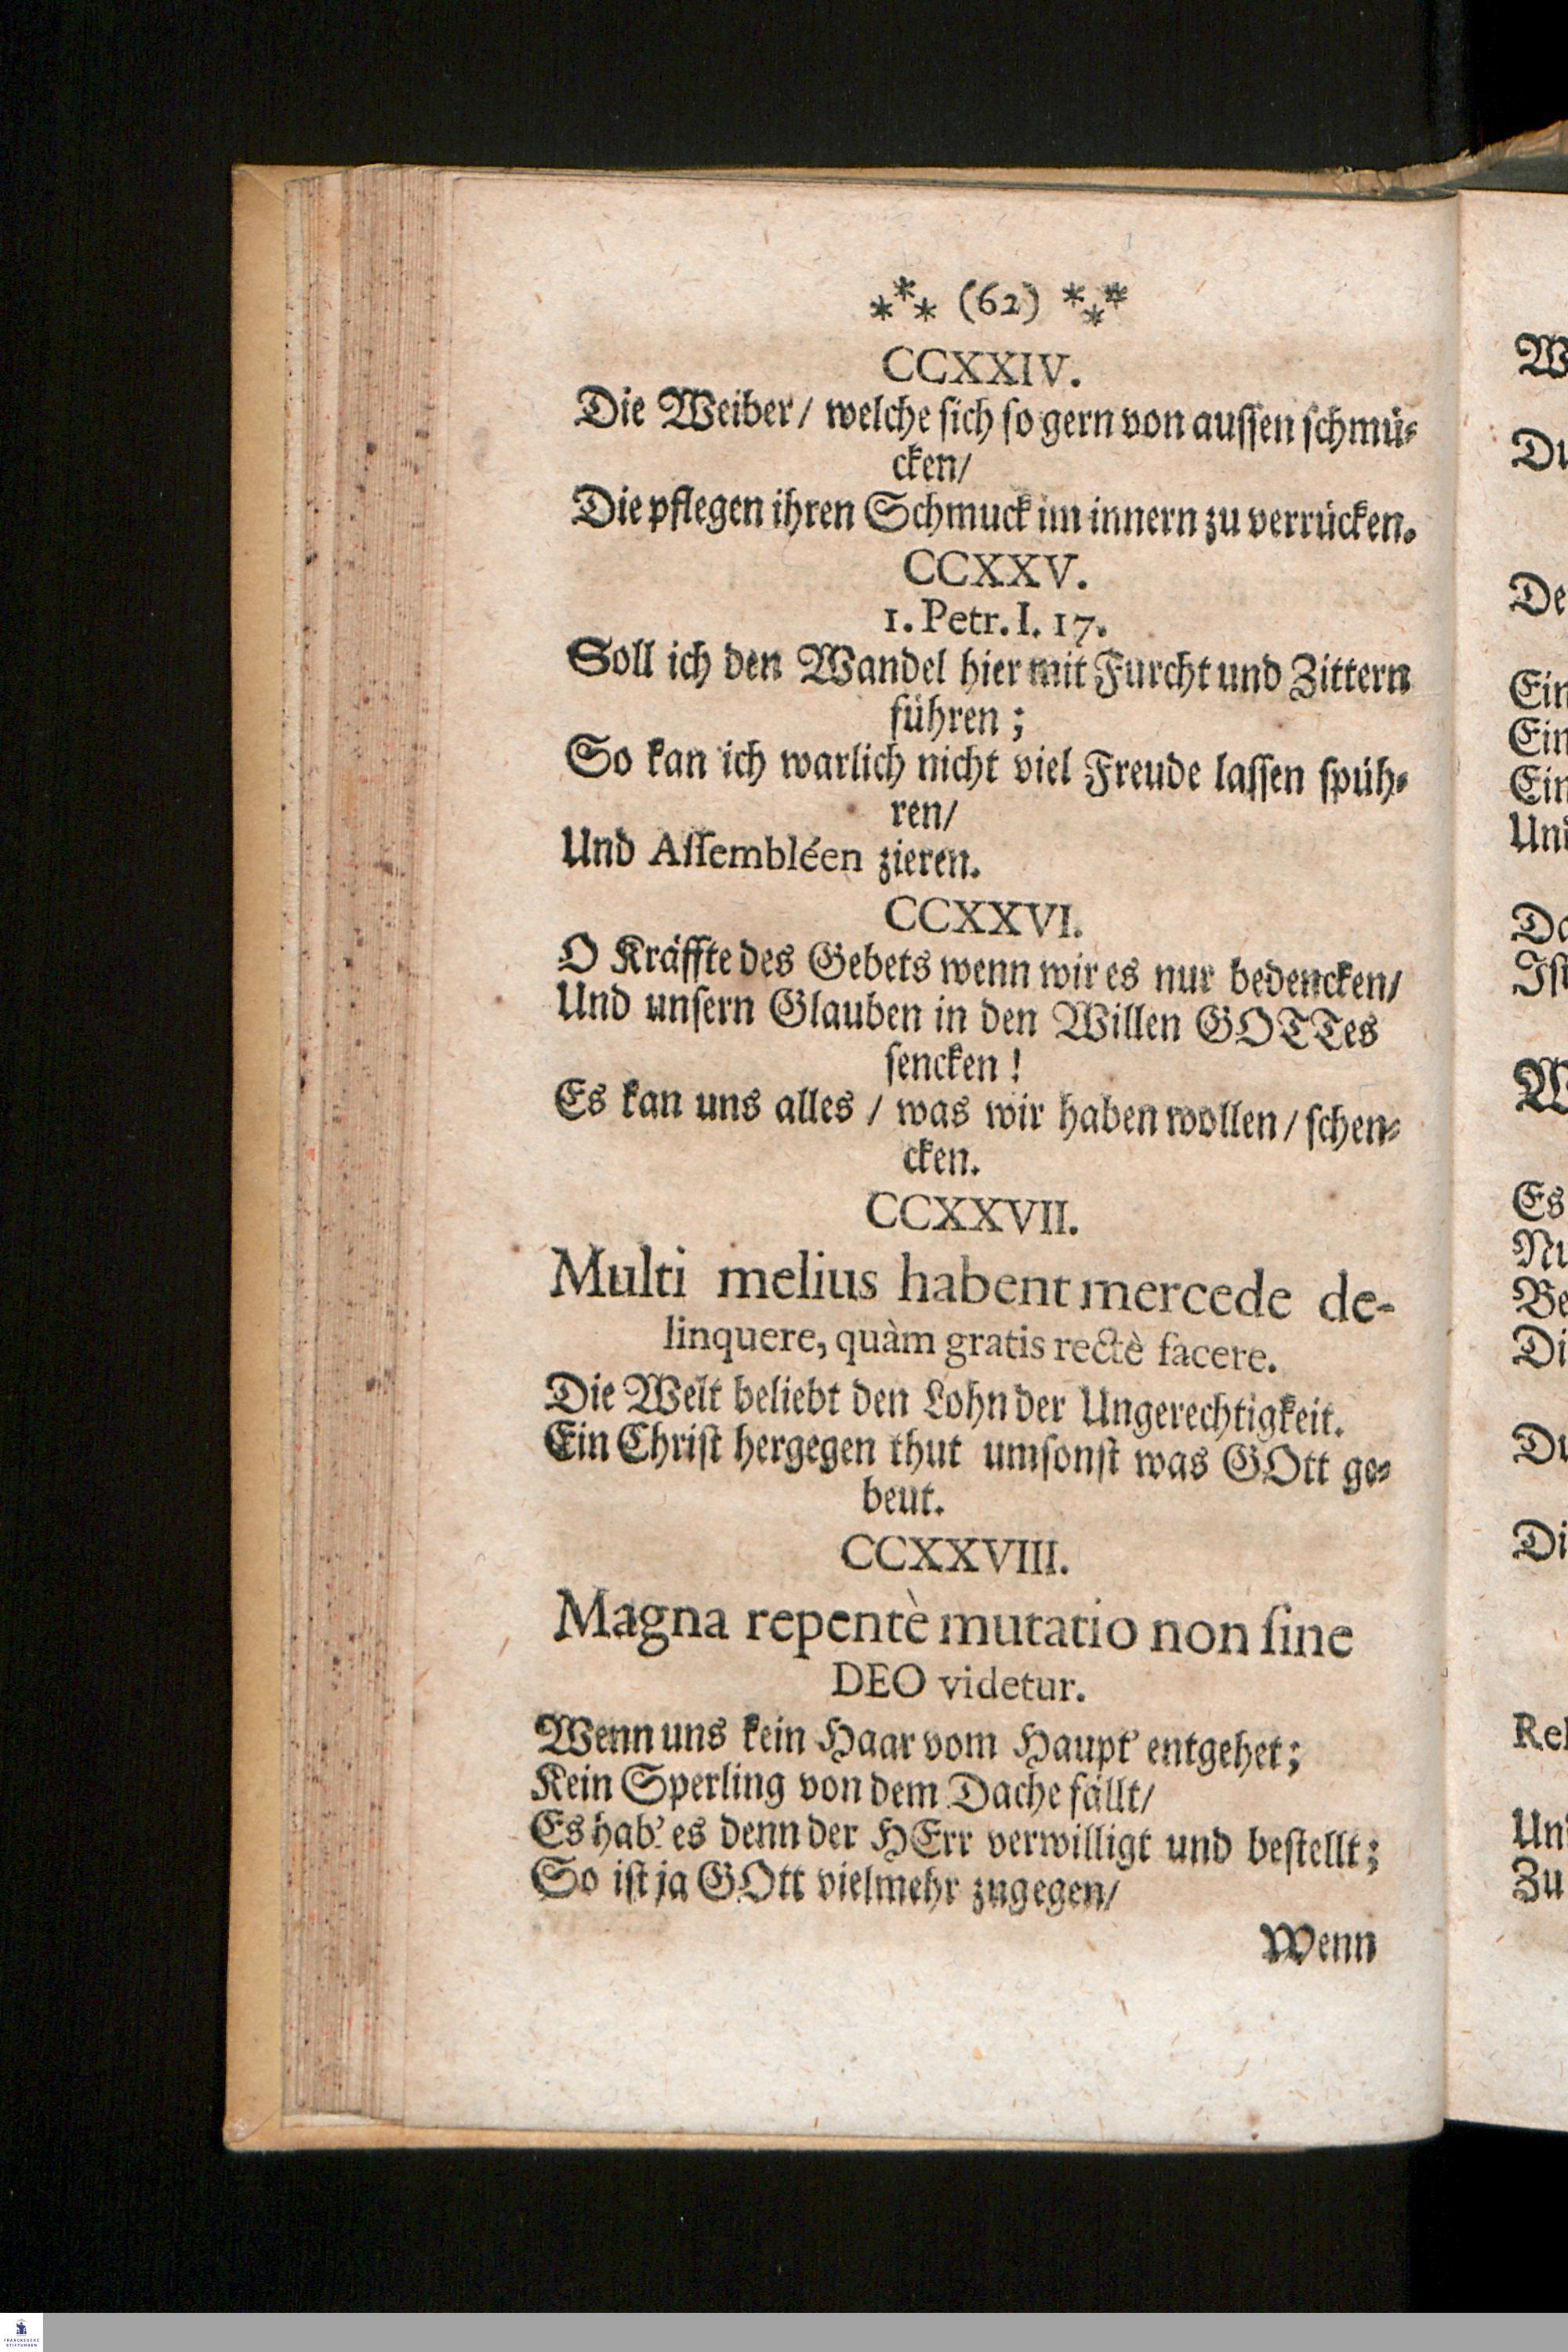 *** (62) ***
CCXXIV.
Die Weiber/ welche sich so gern von aussen schmü⸗
cken/
Die pflegen ihren Schmuck im innern zu verrücken.
CCXXV.
1. Petr. I. 17.
Soll ich den Wandel hier mit Furcht und Zittern
führen ;
So kan ich warlich nicht viel Freude lassen spüh⸗
ren/
Und Assembléen zieren.
CCXXVI.
O Kräffte des Gebets wenn wir es nur bedencken/
Und unsern Glauben in den Willen GOTTes
sencken !
Es kan uns alles / was wir haben wollen / schen⸗
cken.
CCXXVII.
Multi melius habent mercede de-
linquere, quàm gratis rectè facere.
Die Welt beliebt den Lohn der Ungerechtigkeit.
Ein Christ hergegen thut umsonst was GOtt ge⸗
beut.
CCXXVIII.
Magna repentè mutatio non sine
DEO videtur.
Wenn uns kein Haar vom Haupt' entgehet;
Kein Sperling von dem Dache fällt/
Es hab' es denn der HErr verwilligt und bestellt;
So ist ja GOtt vielmehr zugegen/
Wenn
W
Du
De
Ein
Ein
Ein
Und
Da
Ist
W
Es
Nu
Be
Di
Du
Di
Rel
Und
Zu
FRANCKESCHE
STIFTUNGEN